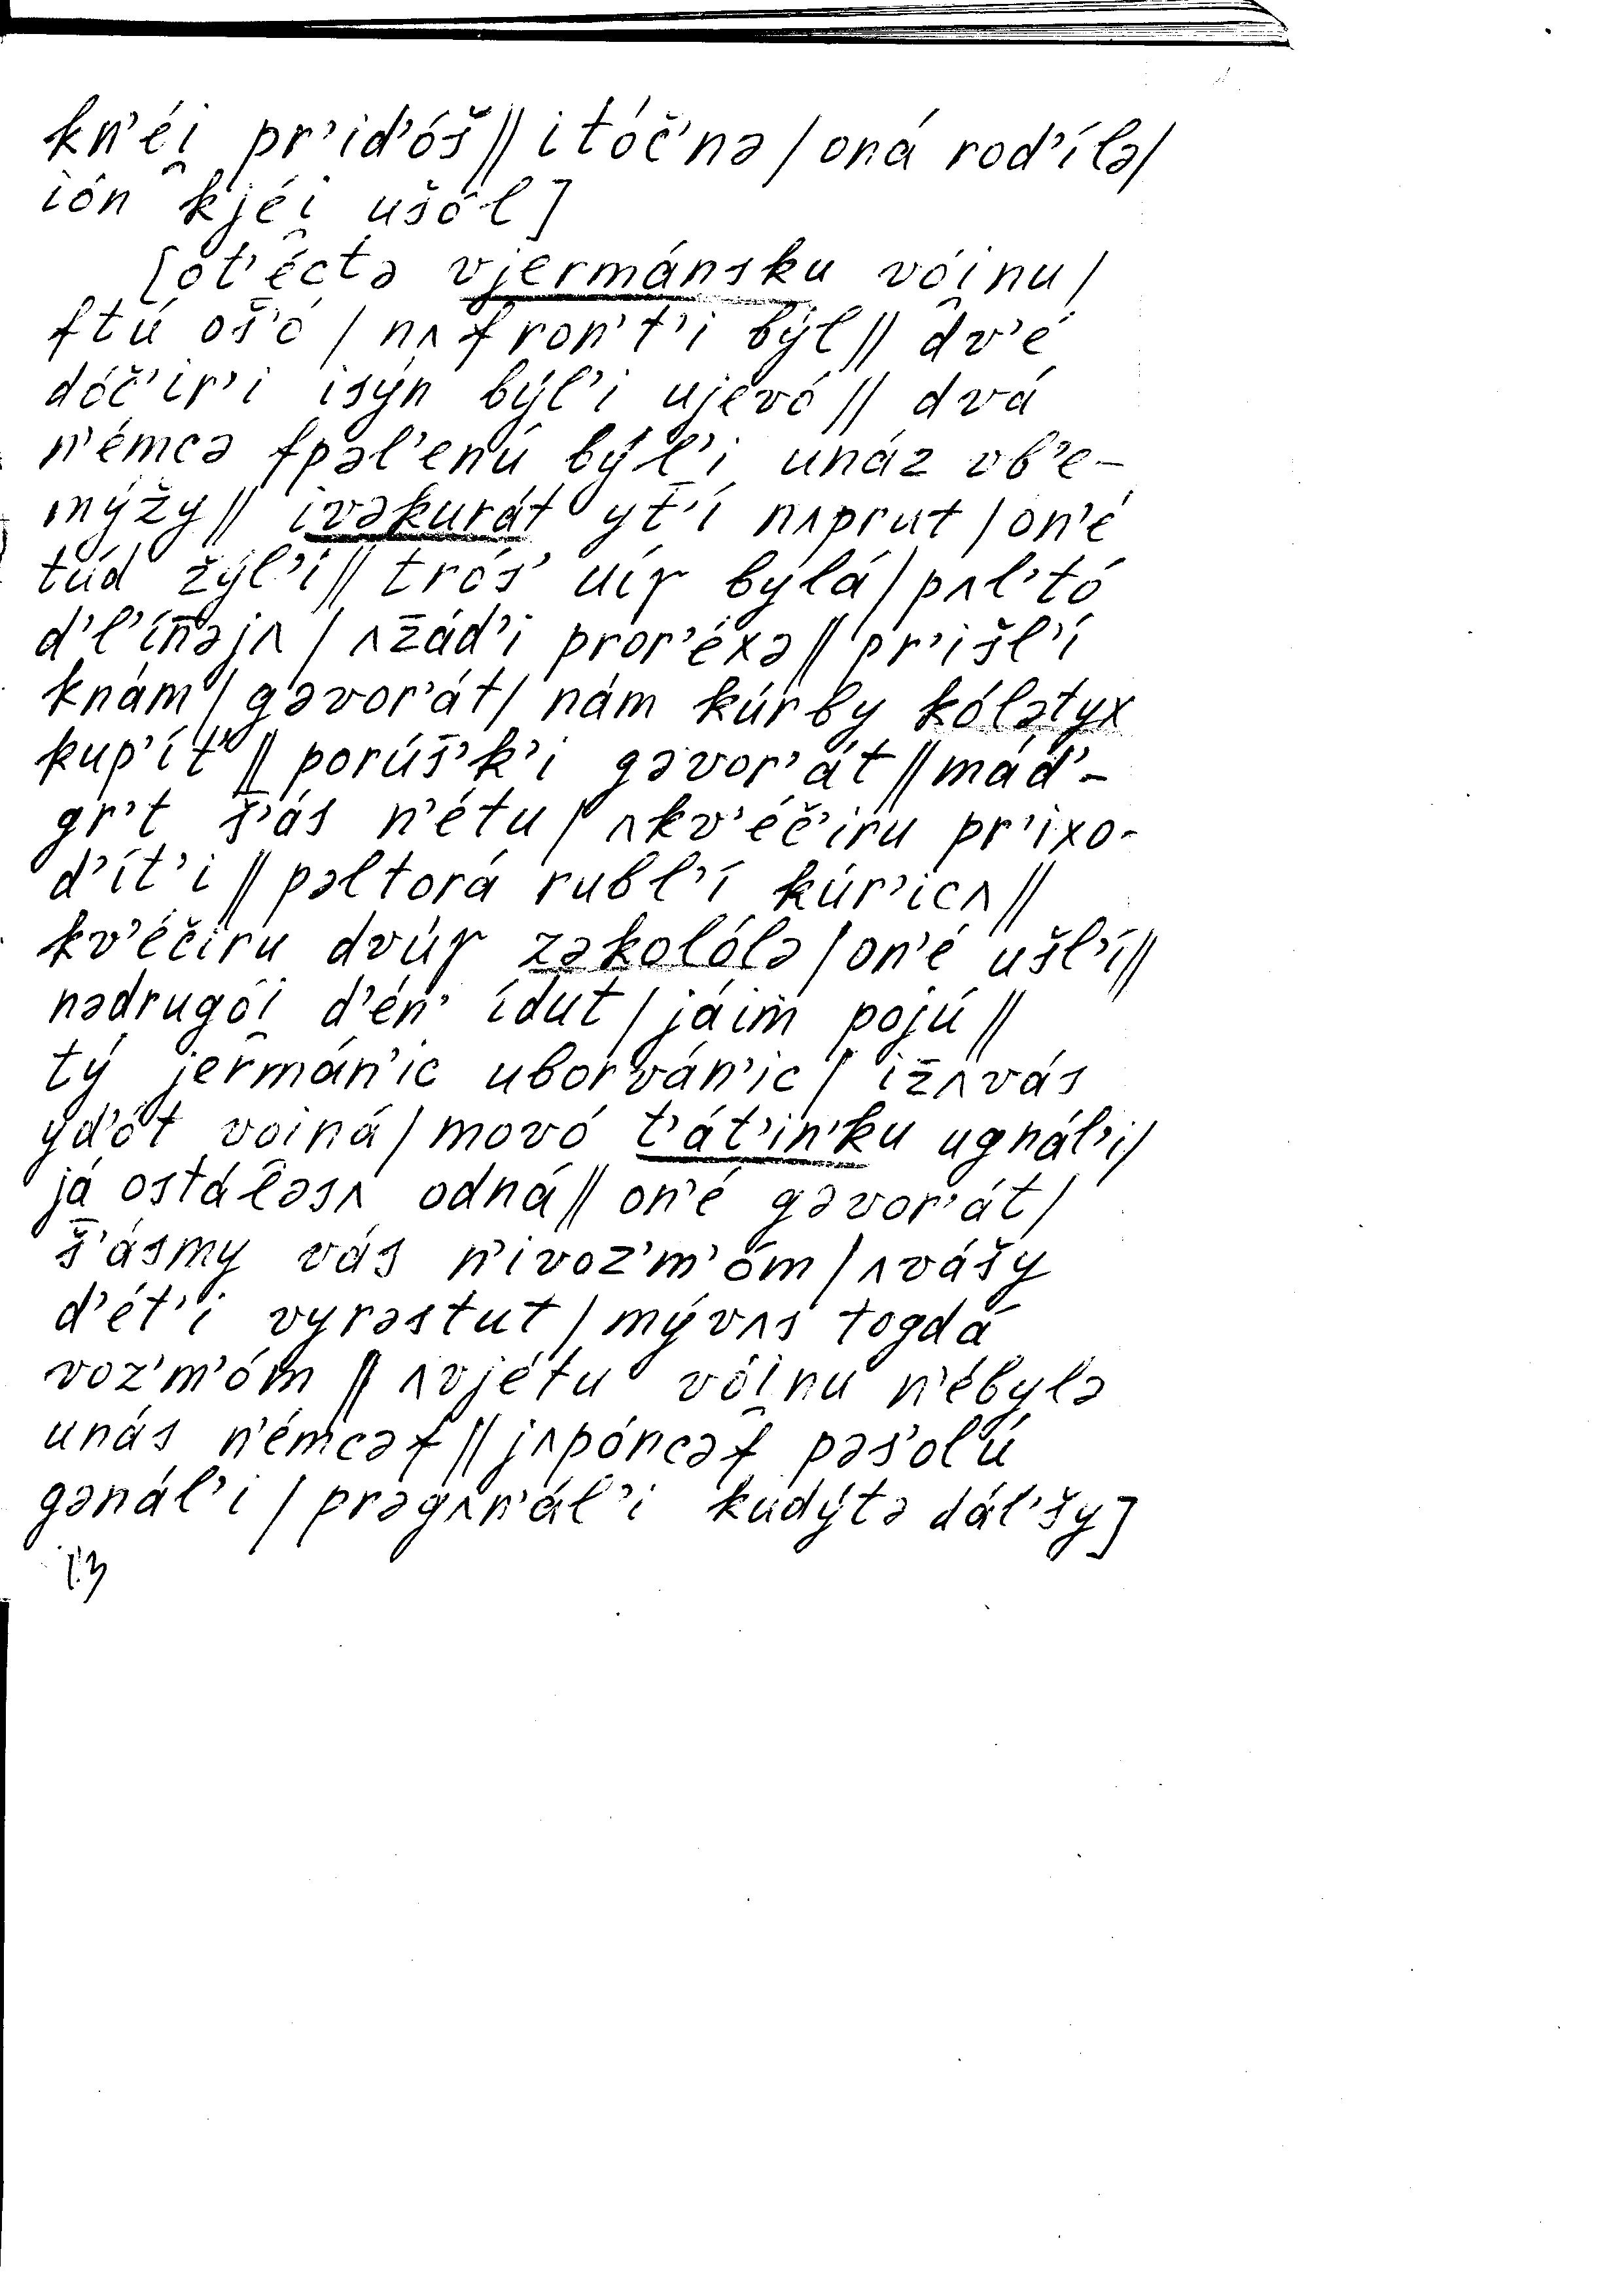 kn’éi̯ pr’id’óš // i tóč’nə / oná rod’ílə /
ión kjéi̯ ušól ]
[ ot’éctə vjermánsku vói̯nu /
ftú oš̄’ó / nʌfron’t’i býl // dv’é
dóč’ir’i isýn býl’i ujevó // dvá
n’émcə fpəl’enú býl’i unáz vb’e-
mýžy // ivəkurát yt’í nʌprut / on’é
túd žýl’i // trós’ uír bylá / pʌl’tó
d’l’ín̄əjʌ / ʌz̄ád’i pror’éxə // pr’išl’í
knám / gəvor’át / nám kúrby kólətyx
kup’ít’ // porús̄’k’i gəvor’át // mád’-
gr’t š̄’ás n’étu / ʌkv’éč’iru pr’ixo-
d’ít’i // pəltorá rubl’í kúr’icʌ //
kv’éčiru dvúr zəkolólə / on’é ušl’í //
nədrugói̯ d’én’ ídut / jáim pojú //
tý jermán’ic uborván’ic / iz̄ʌvás
yd’ót voiná / movó t’át’in’ku ugnál’i /
já ostáləsʌ odná // on’é gəvor’át /
š̄’ásmy vás n’ivoz’m’óm / ʌvášy
d’ét’i vyrəstut / mývʌs togdá
voz’m’óm // ʌvjétu vói̯nu n’ébylə
unás n’émcəf // jʌpóncəf pəs’olú
gənál’i / prəgʌn’ál’i kudýtə dál’šy ]
13